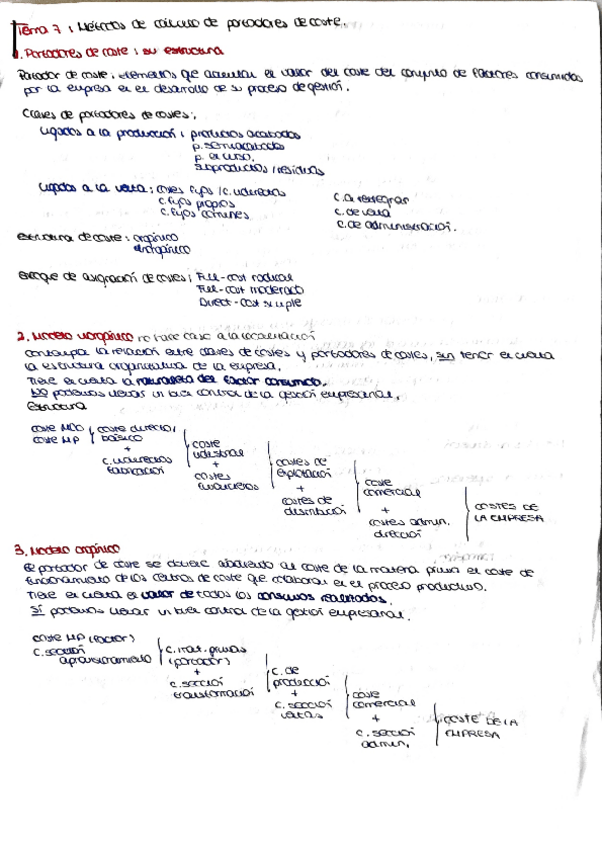 Tema 7: Métodos de cálculo de portadores de coste.
1. Portadores de coste: su estructura
Portador de coste: elementos que acumulan el valor del coste del conjunto de factores consumidos
por la empresa en el desarrollo de su proceso de gestión.
Clases de portadores de costes:
Ligados a la producción: productos acabados
p. semiacabados
p. en curso.
subproductos / residuos
Ligados a la venta: costes fijos / c. indirectos
c. fijos propios
c. fijos comunes
c. a reintegrar
c. de venta
c. de administración.
estructura de coste: orgánico
inorgánico
enfoque de asignación de costes: Full-cost radical
Full-cost moderado
Direct-cost simple
2. Modelo inorgánico no hace caso a la localización
Contempla la relación entre clases de costes y portadores de costes, sin tener en cuenta
la estructura organizativa de la empresa.
Tiene en cuenta la naturaleza del factor consumido.
NO podemos llevar un buen control de la gestión empresarial.
Estructura
coste MOD
coste MP
coste directo/
básico
+
c. indirectos
fabricación
coste
industrial
+
costes
financieros
costes de
explotación
+
costes de
distribución
coste
comercial
+
costes admin.
dirección
COSTES DE
LA EMPRESA
3. Modelo orgánico
El portador de coste se obtiene añadiendo al coste de la materia prima el coste de
funcionamiento de los centros de coste que colaboran en el proceso productivo.
Tiene en cuenta el valor de todos los consumos realizados.
SÍ podemos llevar un buen control de la gestión empresarial.
coste MP (factor)
c. sección
aprovisionamiento
c. mat. primas
(portador)
+
c. sección
transformación
c. de
producción
+
c. sección
ventas
coste
comercial
+
c. sección
admin.
COSTE DE LA
EMPRESA